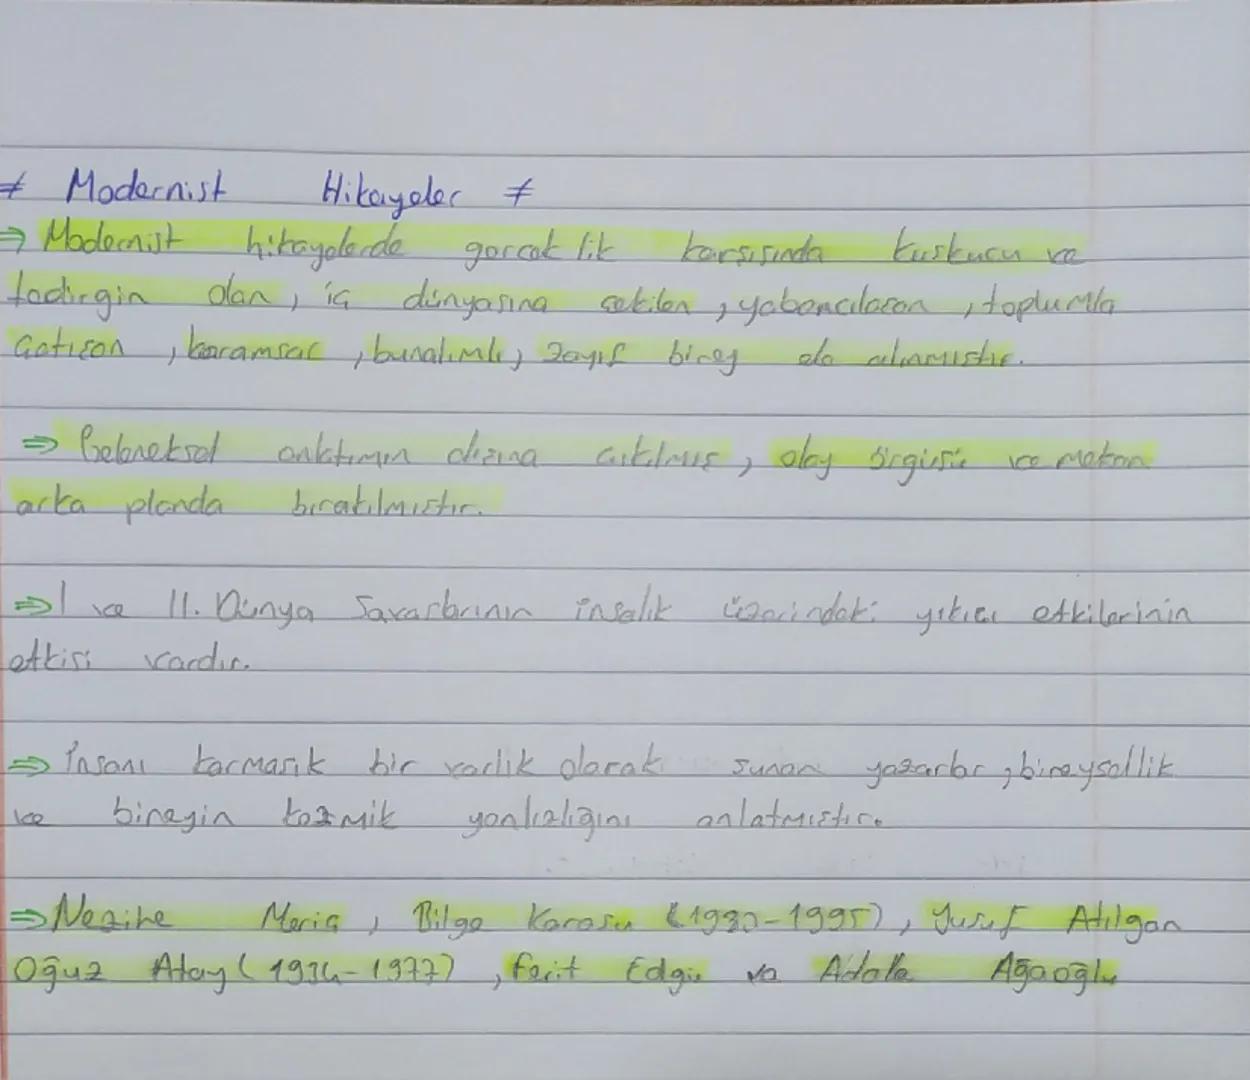 ≠ Modernist Hikayeler ≠
⇒ Modernist hikayelerde gerçeklik karşısında kuşkucu ve
tedirgin olan, iç dünyasına çekilen, yabancılaşan, toplumla
çatışan, karamsar, bunalımlı, zayıf birey ele alınmıştır.
⇒ Geleneksel anlatımın dışına çıkılmış, olay örgüsü ve mekan
arka planda bırakılmıştır.
⇒ I ve II. Dünya Savaşlarının insalık üzerindeki yıkıcı etkilerinin
etkisi vardır.
⇒ İnsanı karmaşık bir varlık olarak sunan yazarlar, bireysellik
ve bireyin kozmik yanlızlığını anlatmıştır.
⇒ Nezihe Meriç, Bilge Karasu (1930-1995), Yusuf Atılgan
Oğuz Atay (1934-1977), Ferit Edgü ve Adale Ağaoğlu